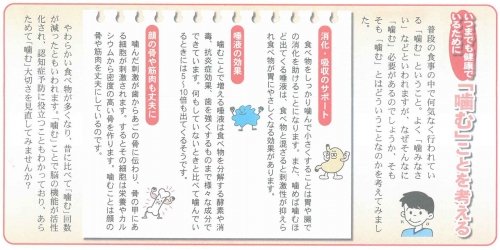 いつまでも健康で
いるために
「噛む」ことを考える
普段の食事の中で何気なく行われてい
る「噛む」ということ。よく「噛みなさ
い」などといわれますが、なぜそんなに
「噛む」必要があるのでしょうか、そも
そも「噛む」とはどういうことなのかを考えてみまし
ょう。
消化・吸収のサポート
食べ物をしっかり噛んで小さくすることは胃や腸で
の消化を助けることになります。また、噛めば噛むほ
ど出てくる唾液は、食べ物と混ざると刺激性が抑えら
れ、食べ物が胃にやさしくなる効果があります。
唾液の効果
噛むことで増える唾液は食べ物を分解する酵素や消
毒、抗炎症効果、歯を強くするものまで様々な成分で
できています。何もしていないときと比べて噛んでい
るときには8〜10倍も出てくるそうです。
顔の骨や筋肉も丈夫に
噛んだ刺激が歯からあごの骨に伝わり、骨の中にあ
る細胞が刺激されます。するとその細胞は栄養やカル
シウムから密度の高い骨を作ります。噛むことは顔の
骨や筋肉を丈夫にしているのです。
やわらかい食べ物が多くなり、昔に比べて「噛む」回数
が減ったともいわれます。「噛む」ことで脳の機能が活性
化され、認知症予防に役立つこともわかっており、あら
ためて「噛む」大切さを見直してみませんか？